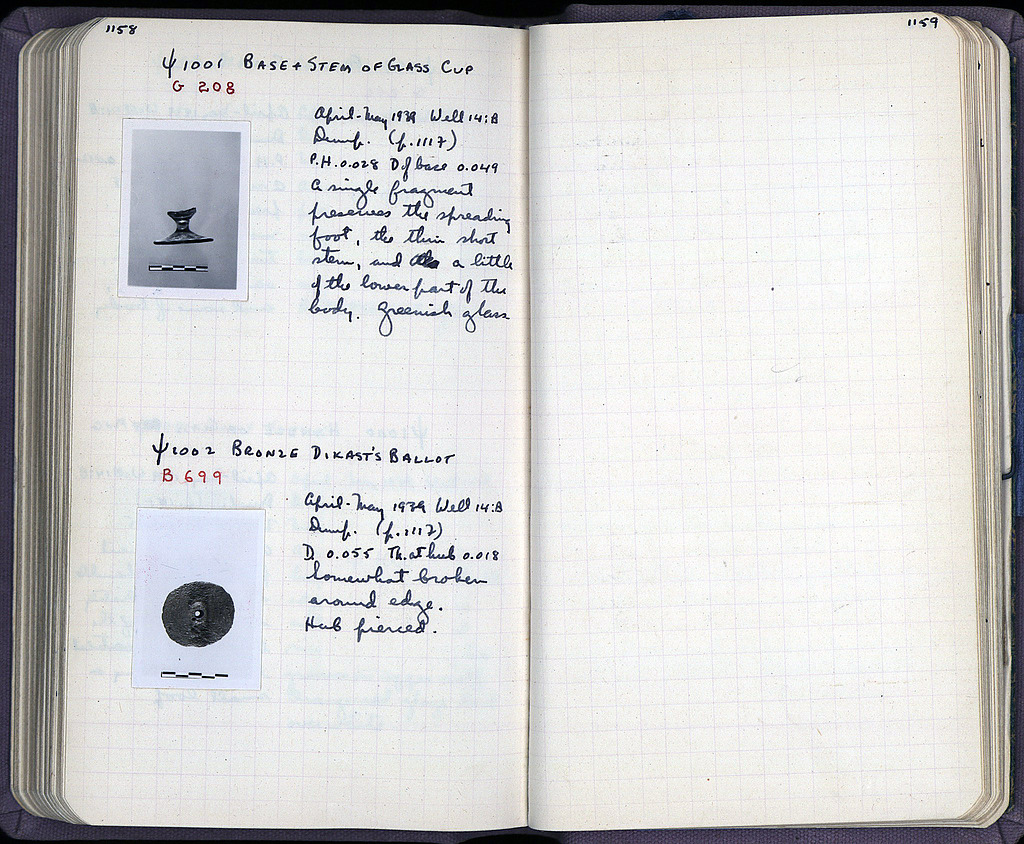 1158
ψ 1001 BASE + STEM OF GLASS CUP
G 208
April-May 1939 Well 14:B
Dump. (p.1117)
P.H. 0.028 D of base 0.049
A single fragment
preserves the spreading
foot, the thin short
stem, and a little
of the lower part of the
body. Greenish glass
ψ 1002 BRONZE DIKAST'S BALLOT
B 699
April-May 1939 Well 14:B
Dump. (p.1117)
D. 0.055 Th. at hub 0.018
Somewhat broken
around edge.
Hub pierced.
1159